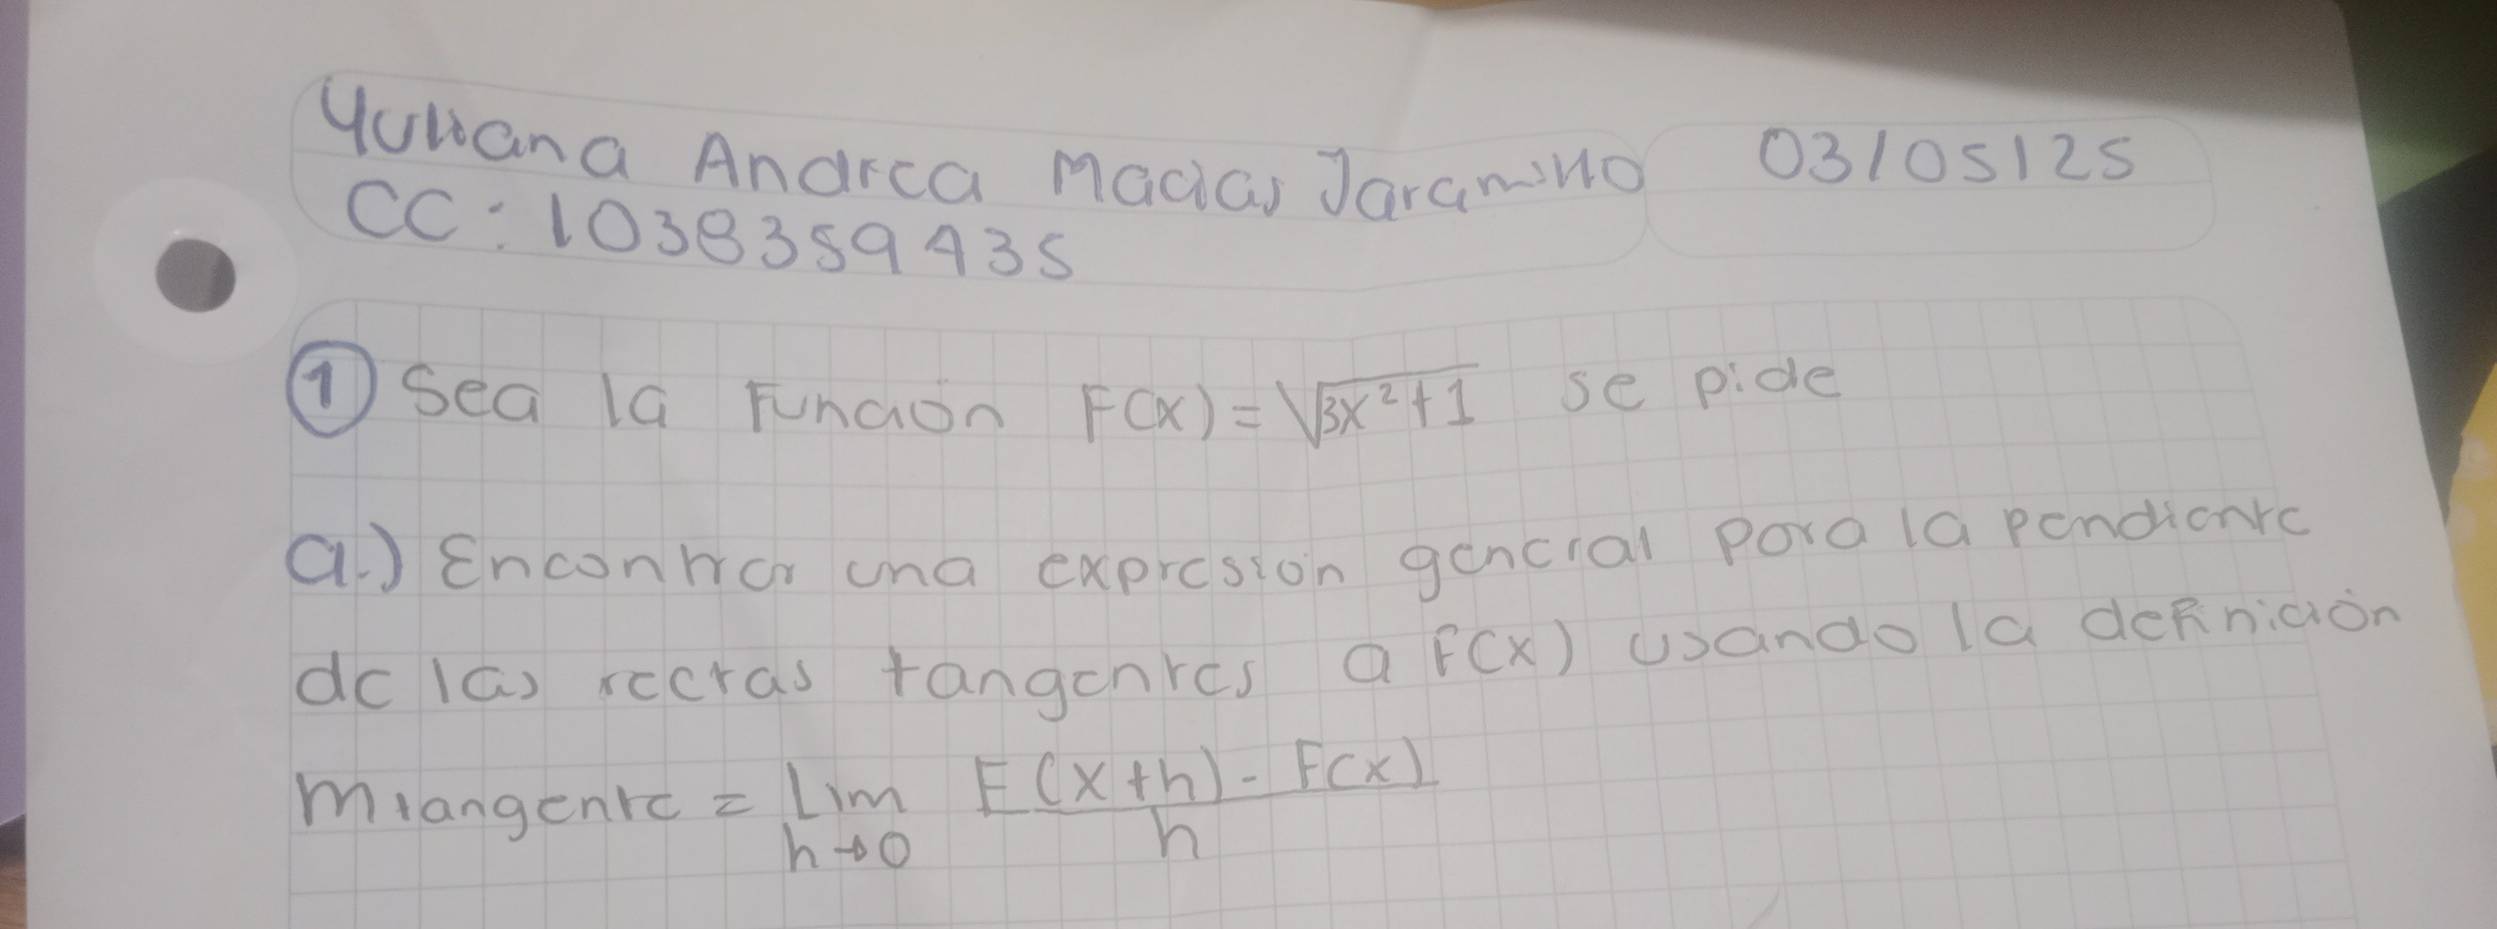 Yuliana Andrea Macias Jaramillo 03/05/25
CC: 1038359435
① Sea la Función F(x) = √3x²+1 se pide
a.) Encontrar una expresión general para la pendiente
de las rectas tangentes a F(x) usando la definición
mtangente = Lim F(x+h) - F(x)
h→0 h